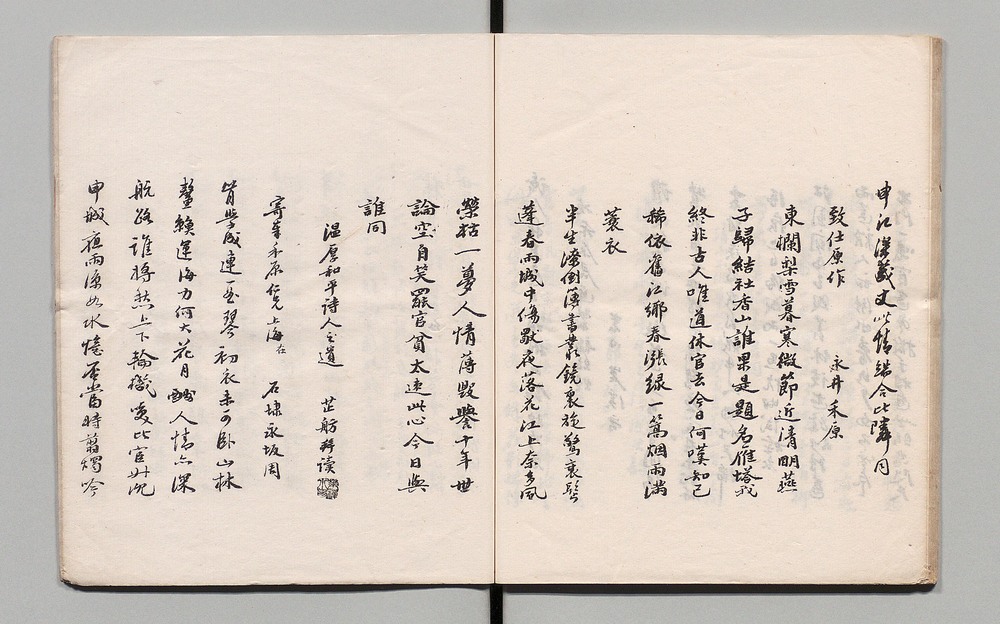 申江漢義文以情端合比隣同
致仕原作
永井禾原
東欄梨雪暮寒微節近清明燕
子歸結社香山誰果是題名雁塔我
終非古人唯道休官去今日何嘆知己
稀依舊江鄉春漲緑一篙烟雨滿
蓑衣
半生潦倒簿書叢鏡裏旋驚衰鬢
蓬春雨城中傷歇夜落花江上奈多風
榮枯一夢人情薄毀譽十年世
論空自笑罷官貧太速此心今日與
誰同
温厚和平詩人之遺
芷舫拜讀
寄禾原仁兄在上海
石埭永坂周
背學成連一張琴初衣未可卧山林
鼇賴運海力何大花月酬人情亦深
航路誰將愁上下輪機凌比官升沉
申城夜雨涼如水憶否當時翦燭吟